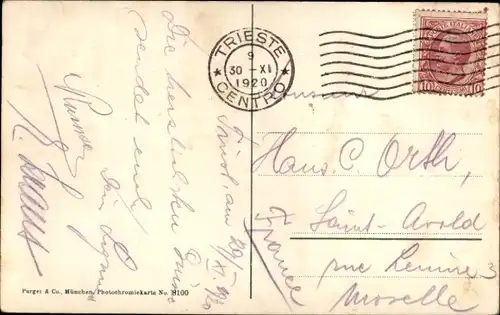 TRIESTE
9
30 - XI
1920
★ CENTRO ★
POSTE ITALIANE
10 10
Monsieur
Hans C. Orth,
Saint-Avold
rue 3
Moselle
France
Triest, am 29/XI. 1920
Die herzlichsten Grüsse
sendet euch
Purger & Co., München, Photochromiekarte No. 8100